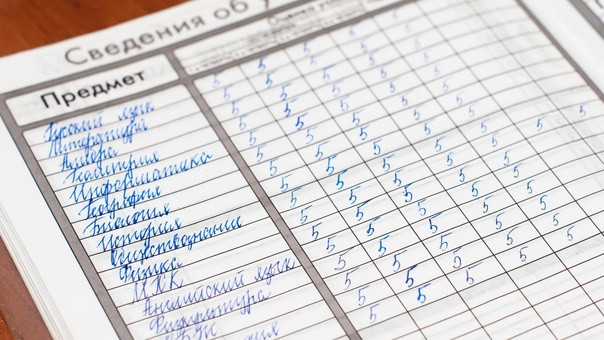 Сведения об у
Оценки
Предмет 5 5 5 5 5
Русский язык 5 5 5 5 5
Литература 5 5 5 5 5
Алгебра 5 5 5 5 5
Геометрия 5 5 5 5 5
Информатика 5 5 5 5 5
География 5 5 5 5 5
Биология 5 5 5 5 5
История 5 5 5 5 5
Обществознание 5 5 5 5 5
Физика 5 5 5 5 5
МХК 5 5 5
Английский язык 5 5 5
Физкультура 5 5
ОБЖ 5